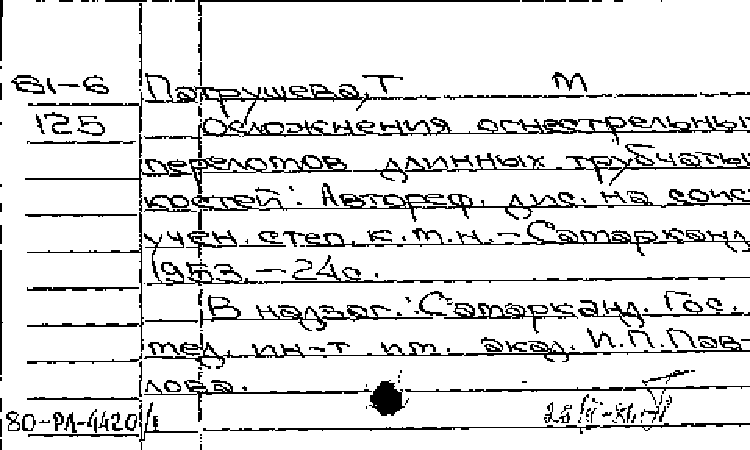 61-6 Патрушева, Т М
125 Осложнения огнестрельны
переломов длинных трубчаты
костей: Автореф. дис. на соис
учен. степ. к.м.н. - Самарканд
1953. - 24 с.
В надзаг.: Самарканд. Гос.
мед. ин-т им. акад. И.П. Пав-
лова.
80-РЛ-4420/1